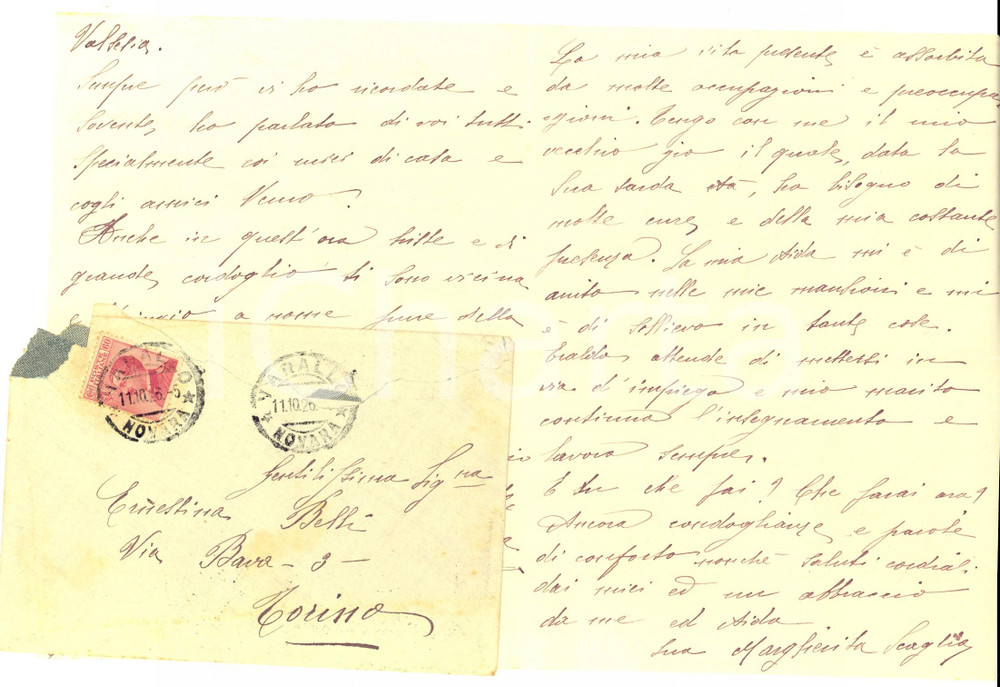 Valsesia.
Sempre però vi ho ricordate e
sovente, ho parlato di voi tutti
specialmente coi miei di casa e
cogli amici
Anche in quest'ora triste e di
grande, cordoglio ti sono vicina
a nome pure della
La mia vita presente, è assorbita
da molte occupazioni e preoccupa
zioni. Tengo con me il mio
vecchio zio il quale, data la
sua tarda età, ha bisogno di
molte cure, e della mia costante
presenza. La mia Aida mi è di
aiuto nelle mie mansioni e mi
è di sollievo in tante cose.
Eraldo attende di mettersi in
via d'impiego e mio marito
continua l'insegnamento e
lavora sempre.
E tu che fai? Che farai ora?
Ancora condoglianze, e parole
di conforto nonchè saluti cordiali
dai miei ed un abbraccio
da me ed Aida
tua Margherita Scaglia
VARALLO
11.10.26
NOVARA
VARALLO
11.10.26
NOVARA
Gentilissima Sig.na
Ernestina Belli
Via Bava - 3 -
Torino